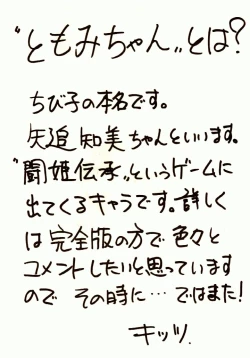 〝ともみちゃん〟とは?
ちび子の本名です。
矢追 知美ちゃんといいます。
〝闘姫伝承〟というゲームに
出てくるキャラです。詳しく
は完全版の方で色々と
コメントしたいと思っています
ので その時に… ではまた!
キッツ.